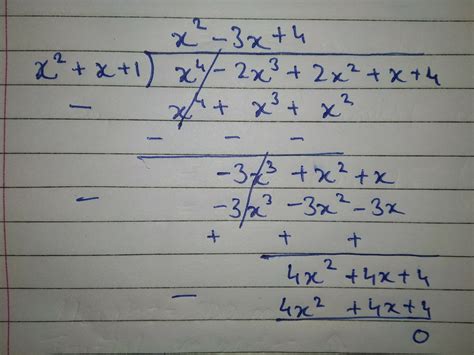 x² - 3x + 4
x² + x + 1) x⁴ - 2x³ + 2x² + x + 4
- x⁴ + x³ + x²
- - -
-3x³ + x² + x
- -3x³ - 3x² - 3x
+ + +
4x² + 4x + 4
- 4x² + 4x + 4
0